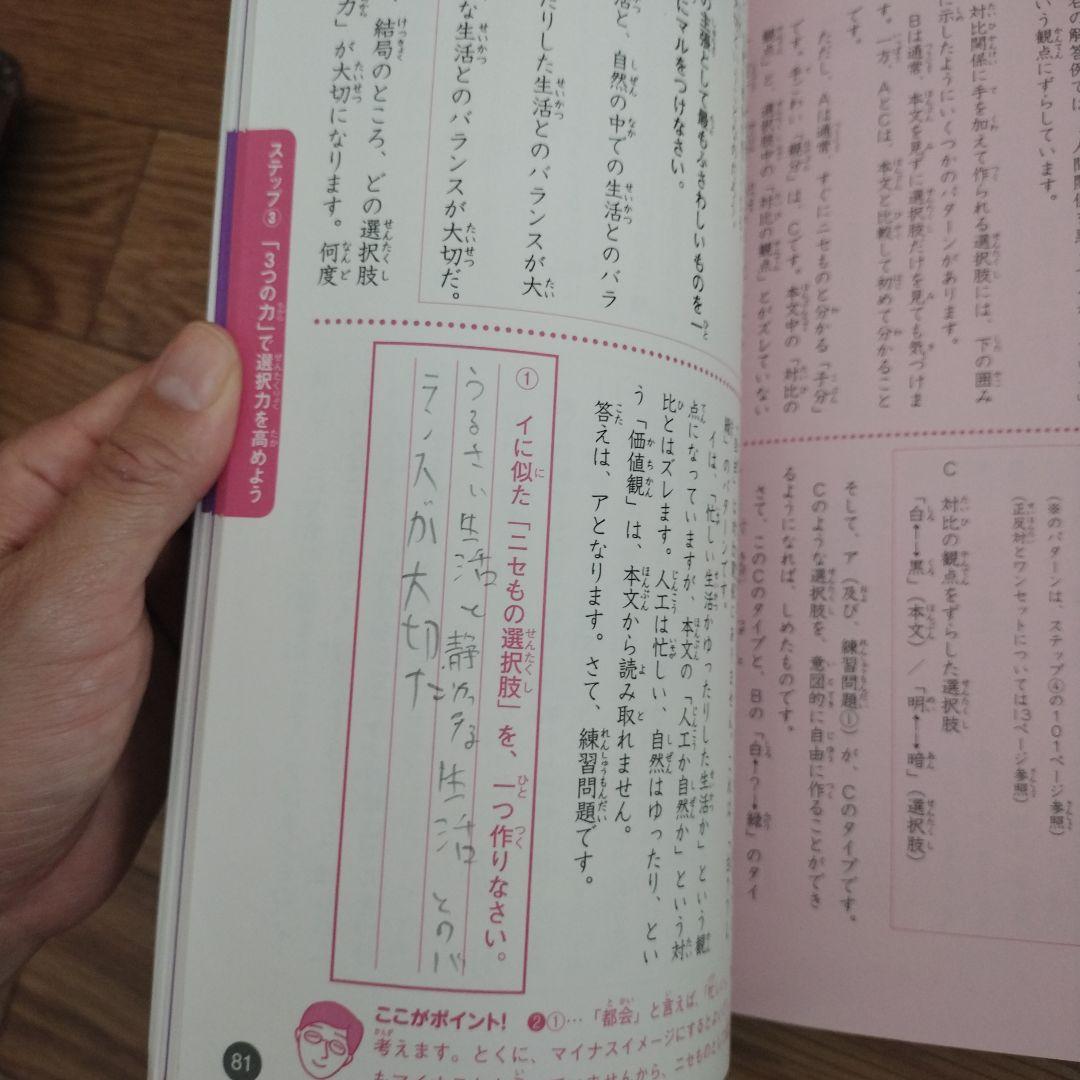 という観点にずらしています。
対比関係に手を加えて作られる選択肢には、下の囲み
に示したようにいくつかのパターンがあります。
Bは通常、本文を見ずに選択肢だけを見ても気づけま
す。一方、AとCは、本文と比較して初めて分かること
です。
ただし、Aは通常、すぐにニセものと分かる「子分」
です。手ごわい「親分」は、Cです。本文中の「対比の
観点」と、選択肢中の「対比の観点」とがズレていない
(※のパターンは、ステップ④の101ページ参照)
(正反対とワンセットについては13ページ参照)
C 対比の観点をずらした選択肢
「白⟷黒」(本文)/「明⟷暗」(選択肢)
そして、ア(及び、練習問題①)が、Cのタイプです。
Cのような選択肢を、意図的に自由に作ることができ
るようになれば、しめたものです。
さて、このCのタイプと、Bの「白⟷?⟷緑」のタイ
の主張として最もふさわしいものを一
にマルをつけなさい。
活と、自然の中での生活とのバラ
たりした生活とのバランスが大
な生活とのバランスが大切だ。
、結局のところ、どの選択肢
力」が大切になります。何度
イは、「忙しい生活かゆったりした生活か」という観
点になっていますが、本文の「人工か自然か」という対
比とはズレます。人工は忙しい、自然はゆったり、とい
う「価値観」は、本文から読み取れません。
答えは、アとなります。さて、練習問題です。
① イに似た「ニセもの選択肢」を、一つ作りなさい。
うるさい生活と静かな生活とのバ
ランスが大切だ
ここがポイント! ❷①…「都会」と言えば、「忙し
考えます。とくに、マイナスイメージにすると
ステップ③ 「3つの力」で選択力を高めよう
81